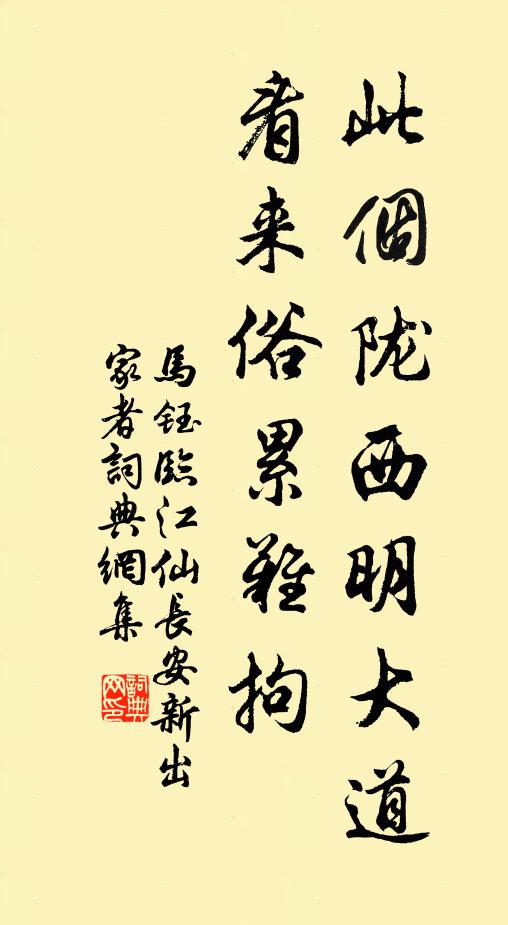 此個陇西明大道
看来俗累難拘
馬鈺臨江仙長安新出
家者詞典網集
詞典网印